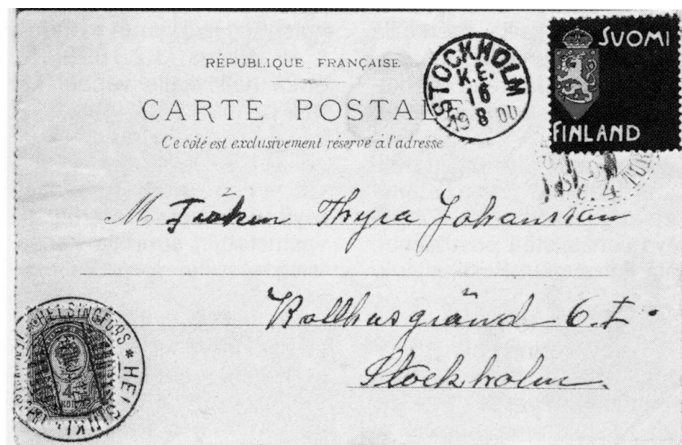 SUOMI
FINLAND
RÉPUBLIQUE FRANÇAISE
CARTE POSTAL
Ce côté est exclusivement réservé à l'adresse
STOCKHOLM
K.E.
16
8 00
M Fröken Thyra Johansson
Bollhusgränd 6. I.
Stockholm.
HELSINGFORS * HELSINKI
4